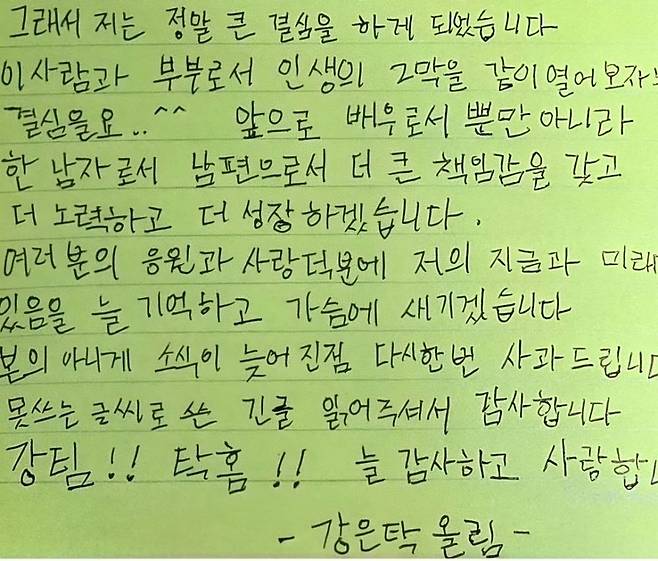 그래서 저는 정말 큰 결심을 하게 되었습니다
이 사람과 부부로서 인생의 2막을 같이 열어보자
결심을요..^^ 앞으로 배우로서 뿐만 아니라
한 남자로서 남편으로서 더 큰 책임감을 갖고
더 노력하고 더 성장하겠습니다.
여러분의 응원과 사랑덕분에 저의 지금과 미래
있음을 늘 기억하고 가슴에 새기겠습니다
본의 아니게 소식이 늦어진점 다시한번 사과드립니다
못쓰는 글씨로 쓴 긴글 읽어주셔서 감사합니다
강팀!! 탁홈!! 늘 감사하고 사랑합
- 강은탁 올림 -